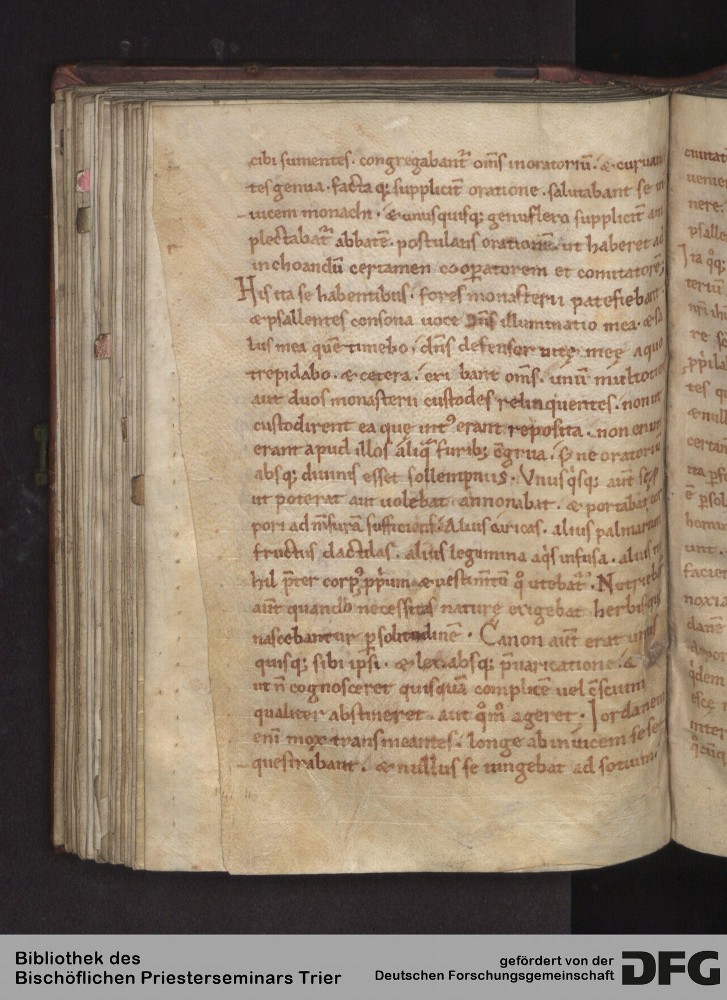 cibi sumentes. congregabant̄ om̄s in oratoriū. & curuan
tes genua. facta q; supplicit̄ oratione. salutabant se in
uicem monachi. & unusquisq; genuflexo supplicit̄ am
plectabat̄ abbatē. postulans orationē. ut haberet ad
inchoandū certamen cooꝑatorem et comitatorē;
His ita se habentibus. fores monasterii patefiebant.
& psallentes consona uoce dn̄s illuminatio mea. & sa
lus mea quē timebo. dn̄s defensor uitę meę a quo
trepidabo. & cetera. exi bant om̄s. unū multotiens
aut duos monasterii custodes relinquentes. non ut
custodirent ea quę int᾿ erant reposita. non enim
erant apud illos aliq̄ furib; c̄grua. s; ne oratoriū
absq; diuinis esset sollempniis. Vnusq́sq; aut̄
ut poterat aut uolebat annonabat. & portabat cor
pori ad m̄surā sufficient̄. Alius caricas. alius palmarum
fructus dactilas. alius legumina aq̇s infusa. alius ni
hil p̄ter corp᾿ ꝓprium & uestim̄tū q̊ utebat̄. Nutriebat̄
aut̄ quando necessitas naturę exigebat herbis quę
nascebantur ꝑ solitudinē. Canon aut̄ erat unus
quisq; sibi ip̄si. & lex absq; p̄uaricatione. &
ut n̄ cognosceret quisquā complicē uel c̄scium
qualiter abstineret. aut q̊m̊ ageret. Iordanem
eni mox transmeantes. longe ab inuicem sese se
questrabant. & nullus se iungebat ad sotium.
Bibliothek des
Bischöflichen Priesterseminars Trier
gefördert von der
Deutschen Forschungsgemeinschaft
DFG